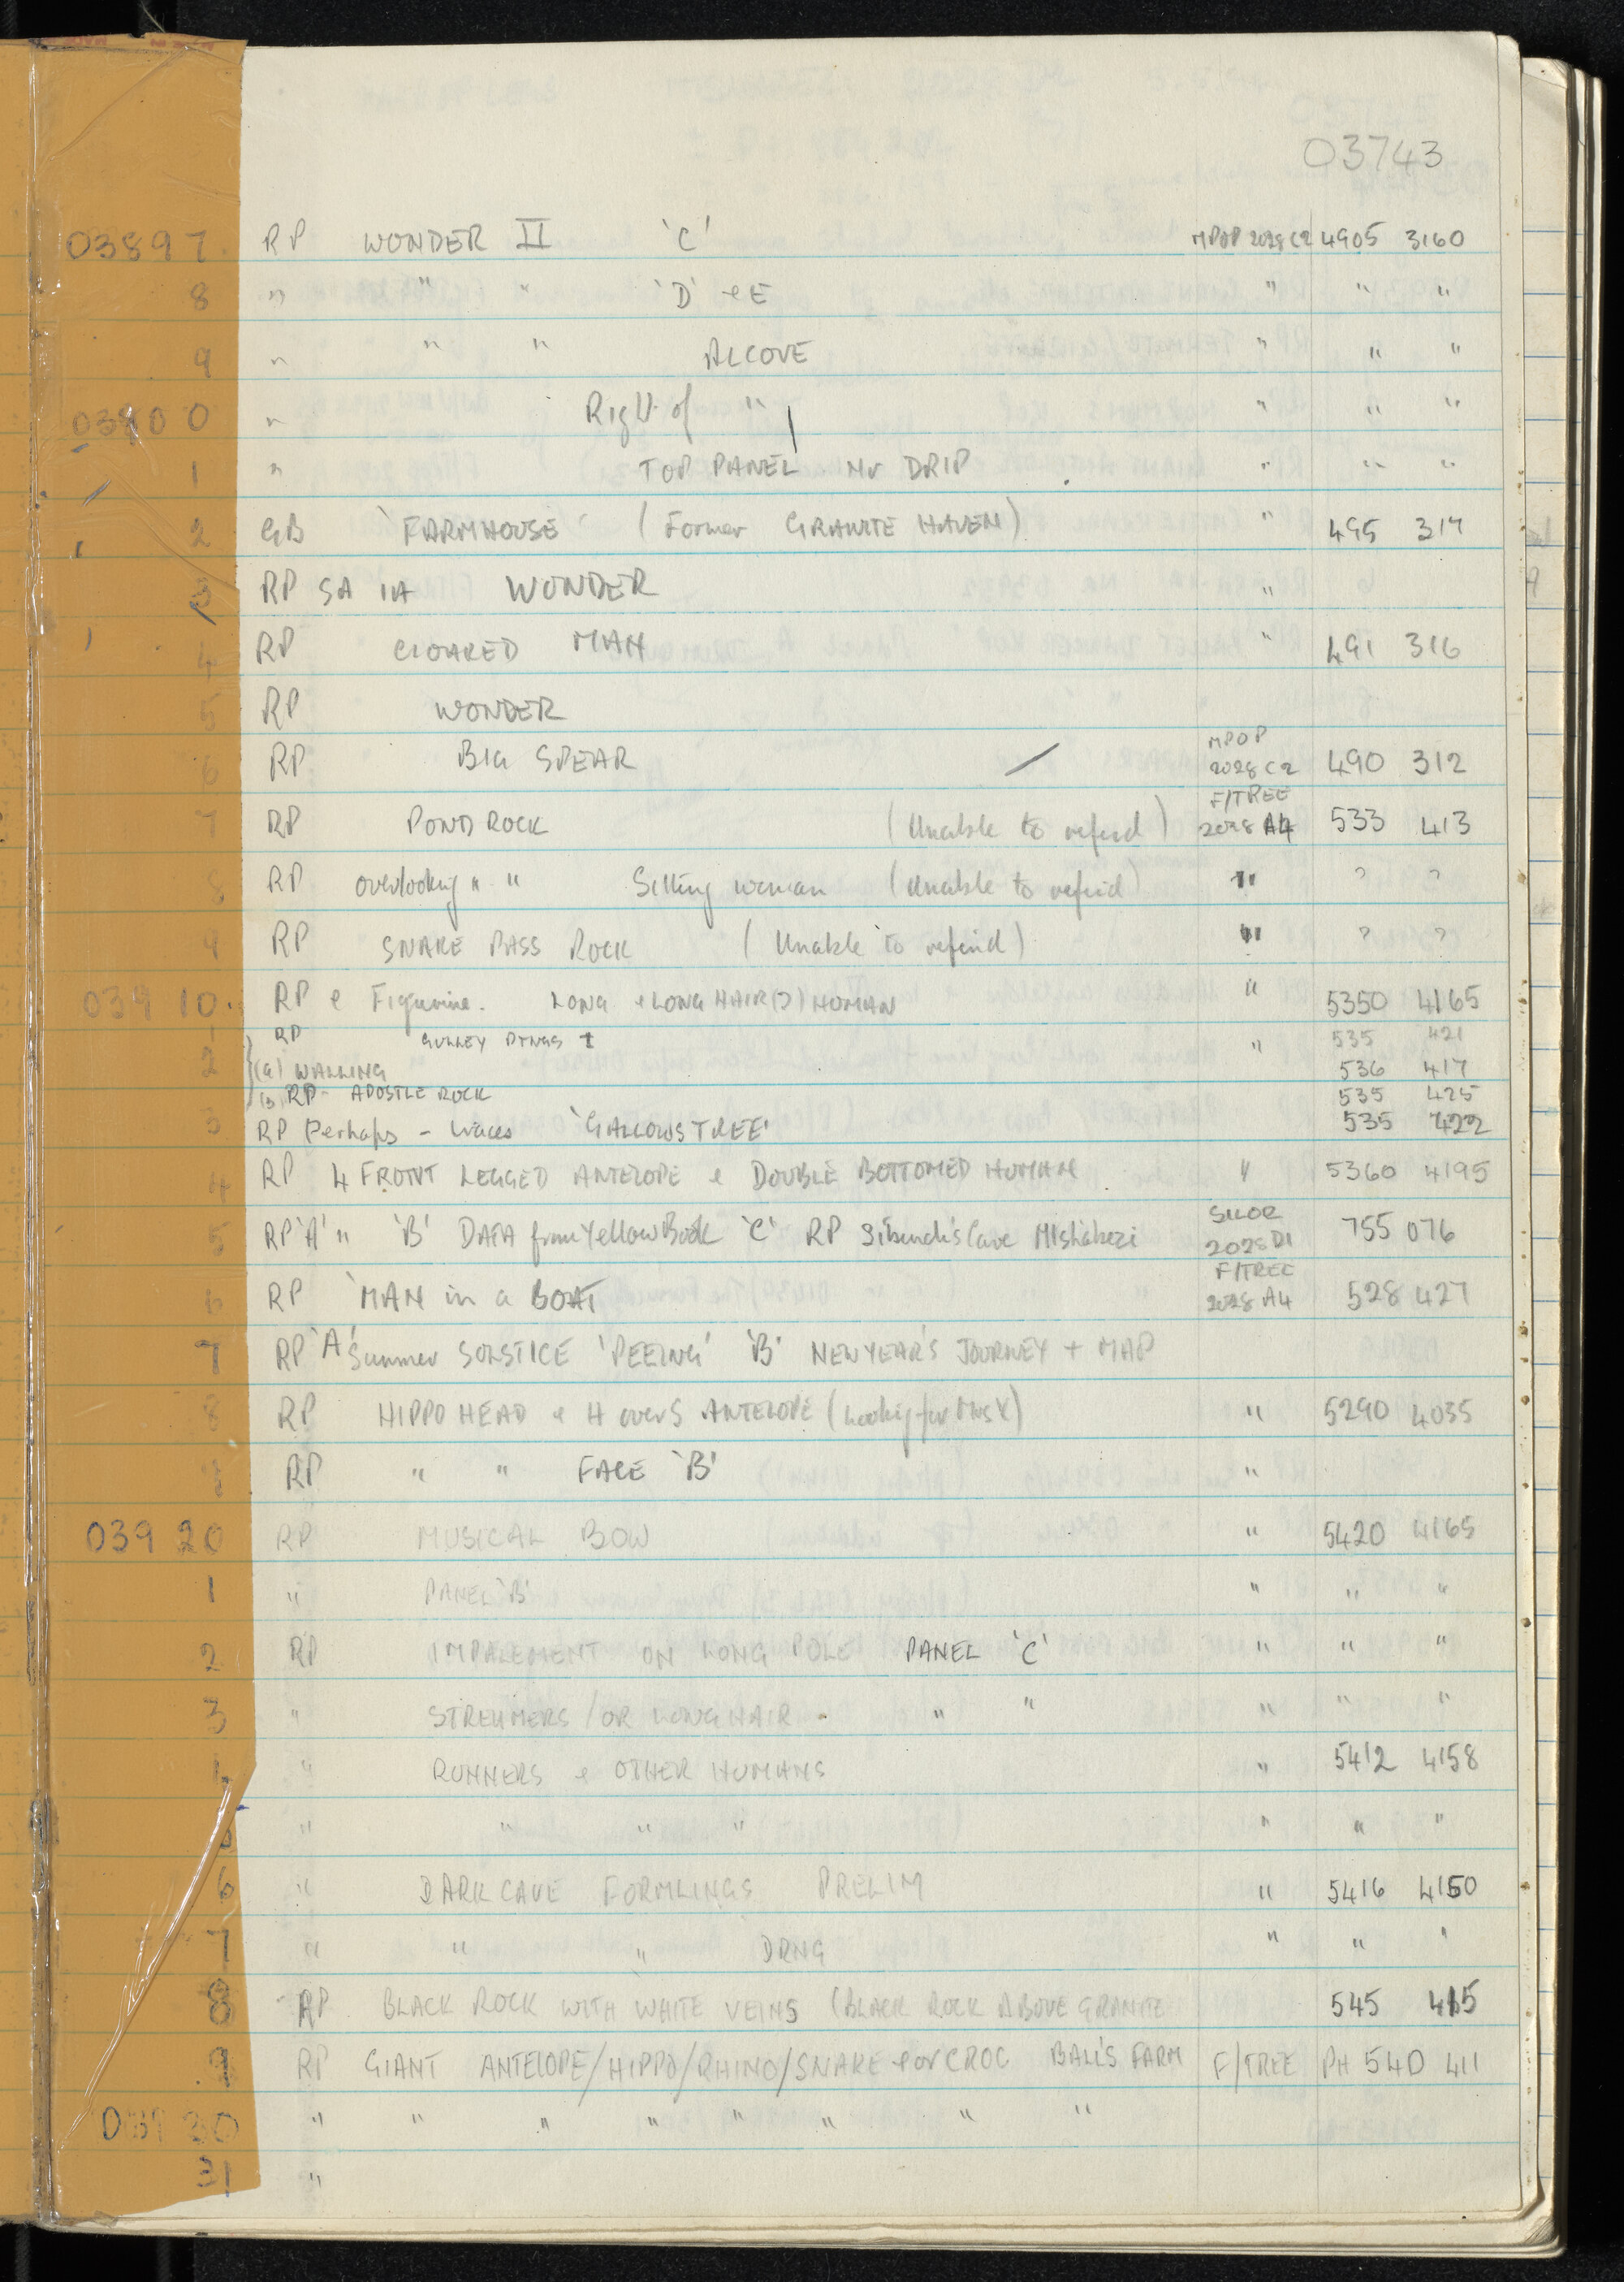 03743
03897 RP WONDER II 'C' MPOP 2028 C2 4905 3160
8 " " " 'D' & E " " "
9 " " " ALCOVE " " "
03900 " Right of " " " "
1 " TOP PANEL Nr DRIP " " "
2 GB 'FARMHOUSE' (Former GRANITE HAVEN) " 495 317
3 RP SA 1A WONDER "
4 RP CLOAKED MAN " 491 316
5 RP WONDER
6 RP BIG SPEAR / MPOP 2028 C2 490 312
7 RP POND ROCK (Unable to refind) F/TREE 2028 A4 533 413
8 RP overlooking " " Sitting woman (Unable to refind) " ? ?
9 RP SNAKE PASS ROCK (Unable to refind) " ? ?
03910 RP & Figurine. LONG & LONG HAIR(?) HUMAN " 5350 4165
1 RP GULLEY PTNGS 1 " 535 421
2 (a) WALLING 536 417
(b) RP - APOSTLE ROCK 535 425
3 RP Perhaps - traces 'GALLOWS TREE' 535 422
4 RP 4 FRONT LEGGED ANTELOPE & DOUBLE BOTTOMED HUMAN " 5360 4195
5 RP 'A' " 'B' DATA from Yellow Book 'C' RP Cave 2028 D1 755 076
6 RP 'MAN in a BOAT F/TREE 2028 A4 528 427
7 RP 'A' Summer SOLSTICE 'PEEING' 'B' NEW YEAR'S JOURNEY + MAP
8 RP HIPPO HEAD & H over S ANTELOPE (Looking for " 5290 4035
9 RP " " FACE 'B' "
03920 RP MUSICAL BOW " 5420 4165
1 " PANEL 'B' " " "
2 RP IMPALEMENT ON LONG POLE PANEL 'C' " " "
3 " STREAMERS / OR LONG HAIR " " " " "
4 " RUNNERS & OTHER HUMANS " 5412 4158
5 " " " " " " "
6 " DARK CAVE FORMLINGS PRELIM " 5416 4150
7 " " " DRNG " " "
8 RP BLACK ROCK WITH WHITE VEINS (BLACK ROCK ABOVE GRANITE 545 415
9 RP GIANT ANTELOPE/HIPPO/RHINO/SNAKE & or CROC BALL'S FARM F/TREE PH 540 411
03930 " " " " " " " "
31 "